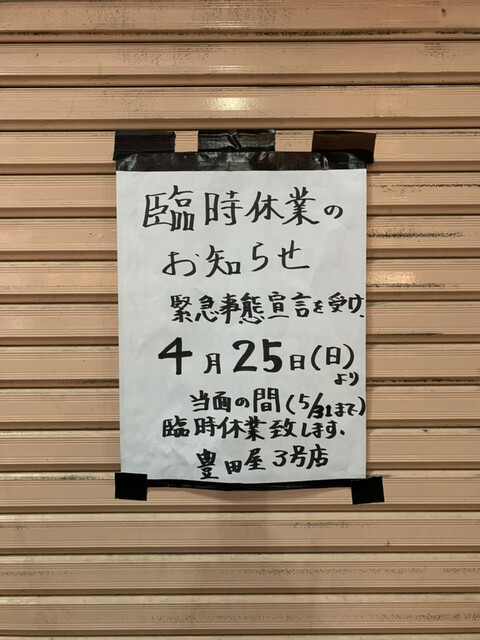 臨時休業の
お知らせ
緊急事態宣言を受け
4月25日(日)
より
当面の間(5/31まで)
臨時休業致します、
豊田屋3号店